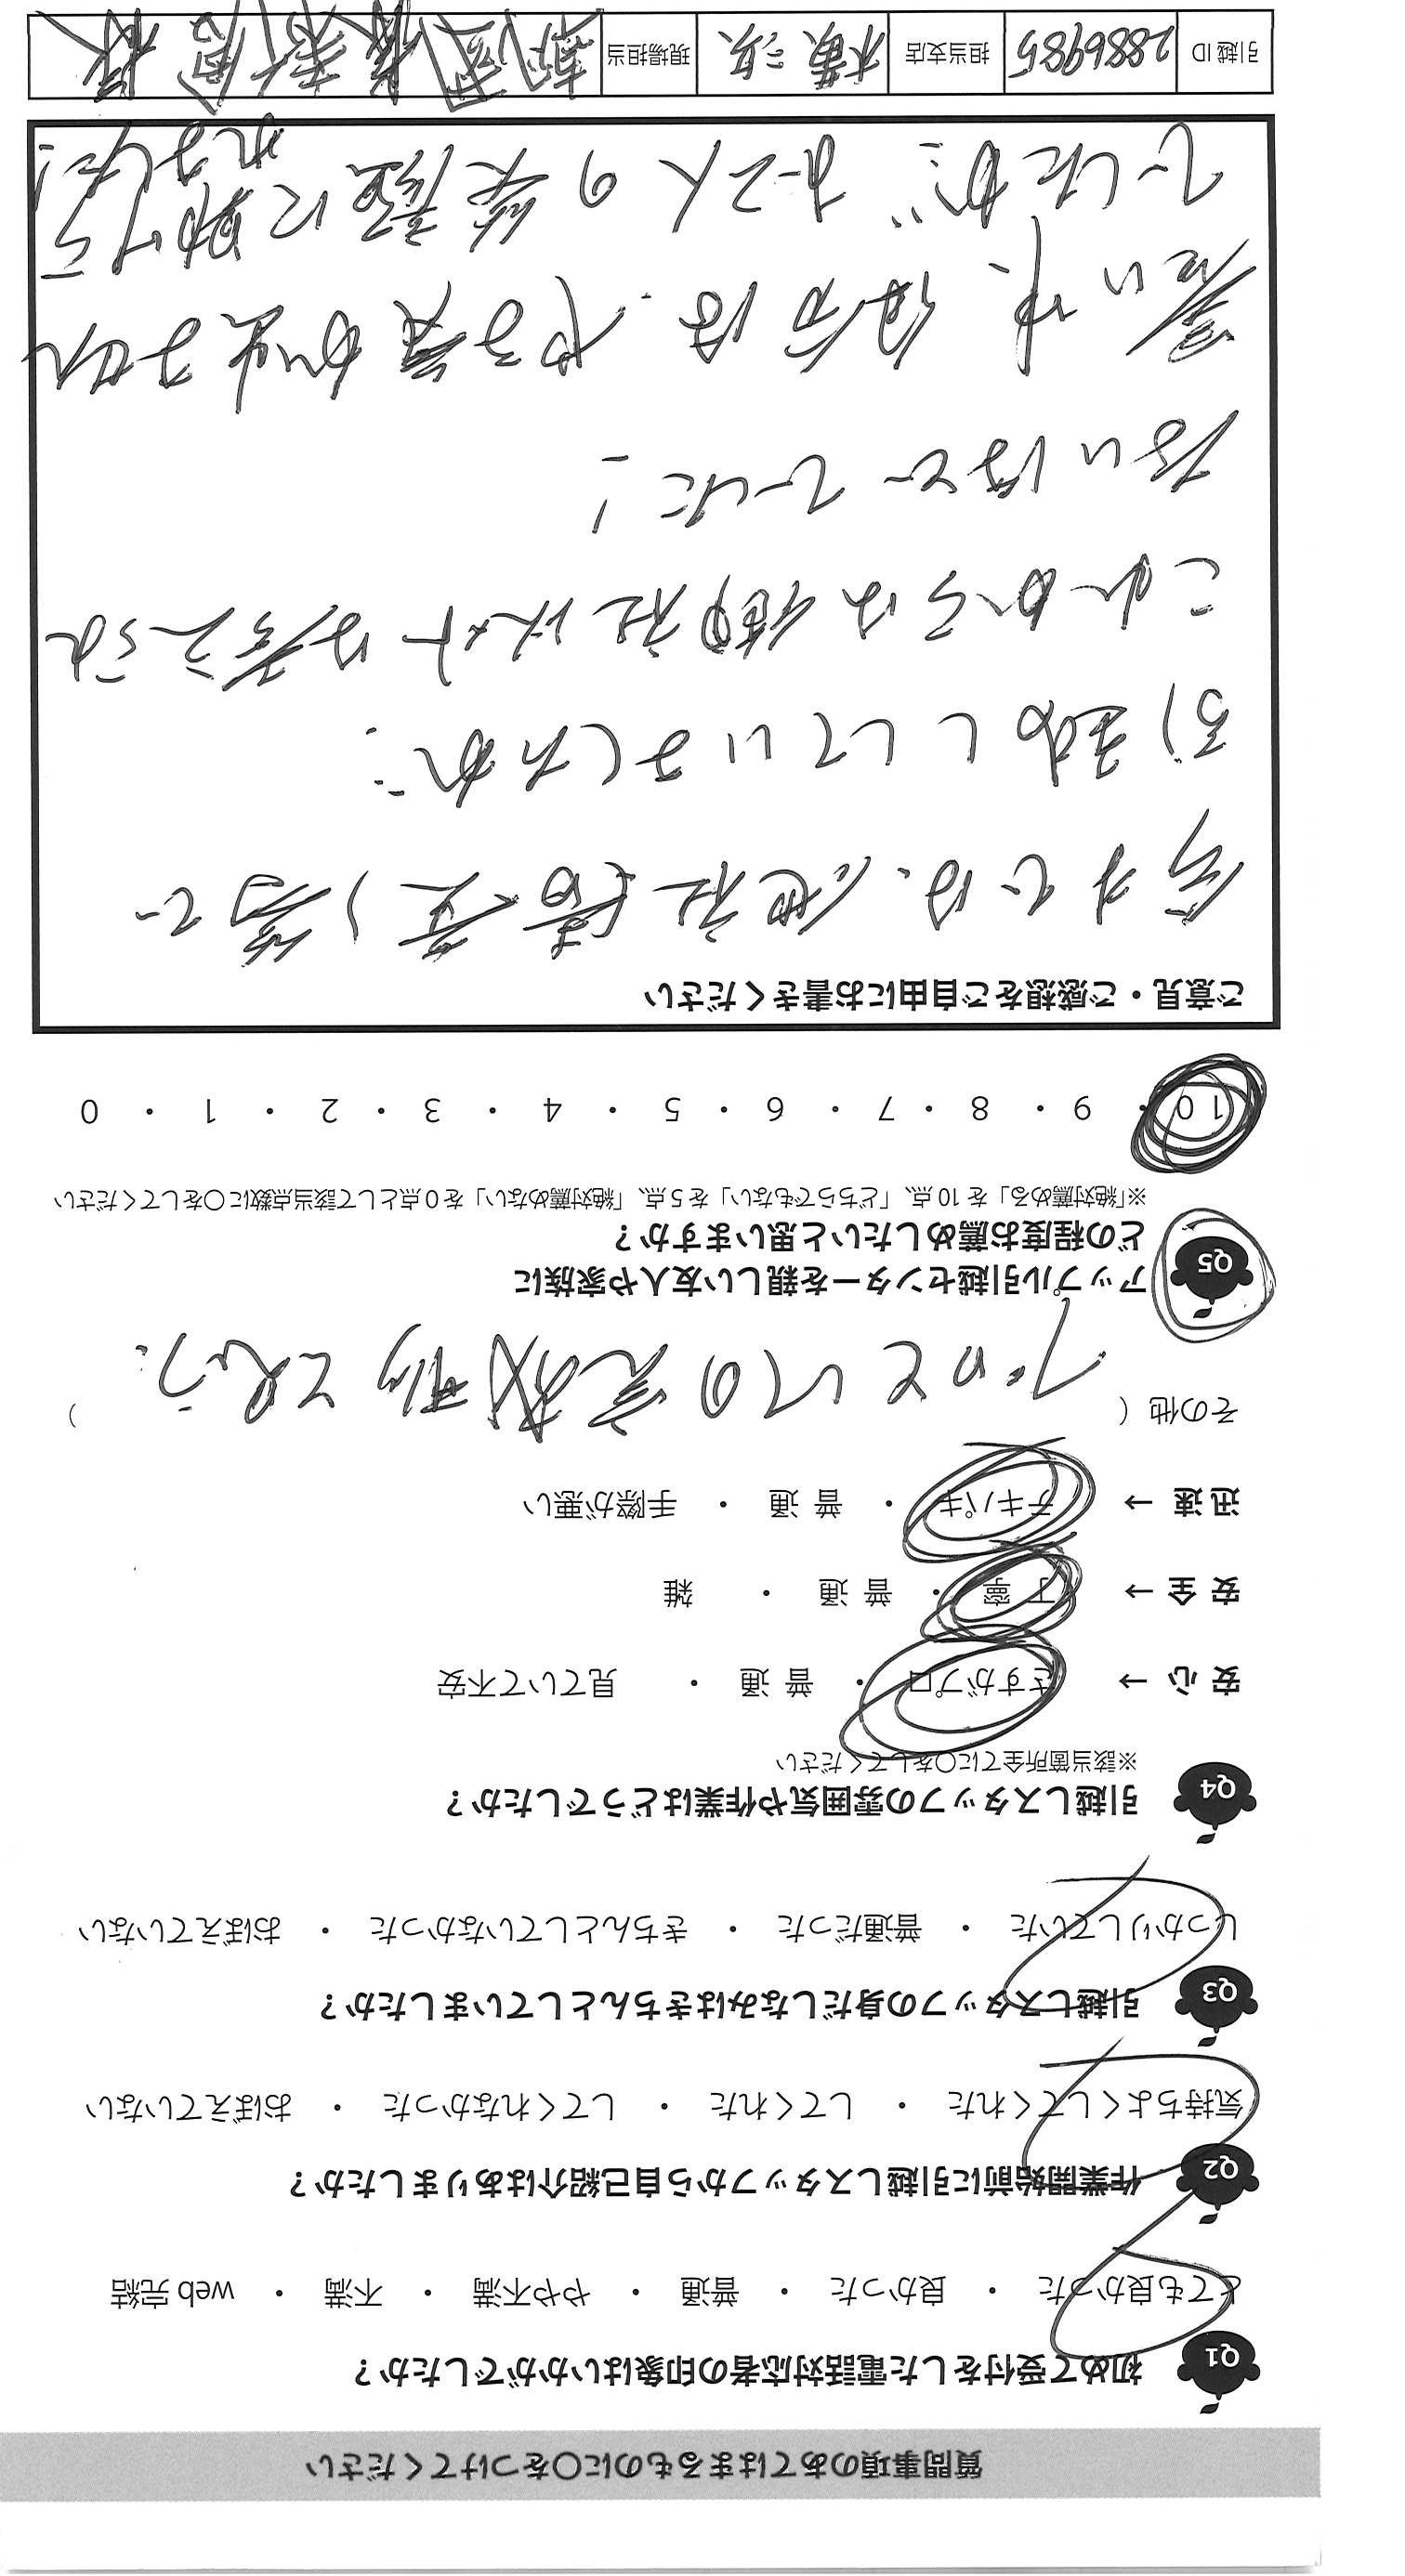 質問事項のあてはまるものに○をつけてください
Q1 初めて受付をした電話対応者の印象はいかがでしたか？
とても良かった ・ 良かった ・ 普通 ・ やや不満 ・ 不満 ・ web 完結
Q2 作業開始前に引越しスタッフから自己紹介はありましたか？
気持ちよくしてくれた ・ してくれた ・ してくれなかった ・ おぼえていない
Q3 引越しスタッフの身だしなみはきちんとしていましたか？
しっかりしていた ・ 普通だった ・ きちんとしていなかった ・ おぼえていない
Q4 引越しスタッフの雰囲気や作業はどうでしたか？
※該当箇所全てに○をしてください
安 心 → さすがプロ ・ 普 通 ・ 見ていて不安
安 全 → 丁 寧 ・ 普 通 ・ 雑
迅 速 → テキパキ ・ 普 通 ・ 手際が悪い
その他（ プロとしての完成形と思う。 ）
Q5 アップル引越センターを親しい友人や家族に
どの程度お薦めしたいと思いますか？
※「絶対薦める」を 10 点、「どちらでもない」を 5 点、「絶対薦めない」を 0 点として該当点数に○をしてください
10 ・ 9 ・ 8 ・ 7 ・ 6 ・ 5 ・ 4 ・ 3 ・ 2 ・ 1 ・ 0
ご意見・ご感想をご自由にお書きください
今までは、他社 等で
引越ししていましたが、
これからは御社以外は考えられ
ないほどでした！
暑い中、自分は、やる気が出ません
でしたが、お二人の笑顔に助けら
れました！
引越ID 2886985 担当支店 横浜 現場担当